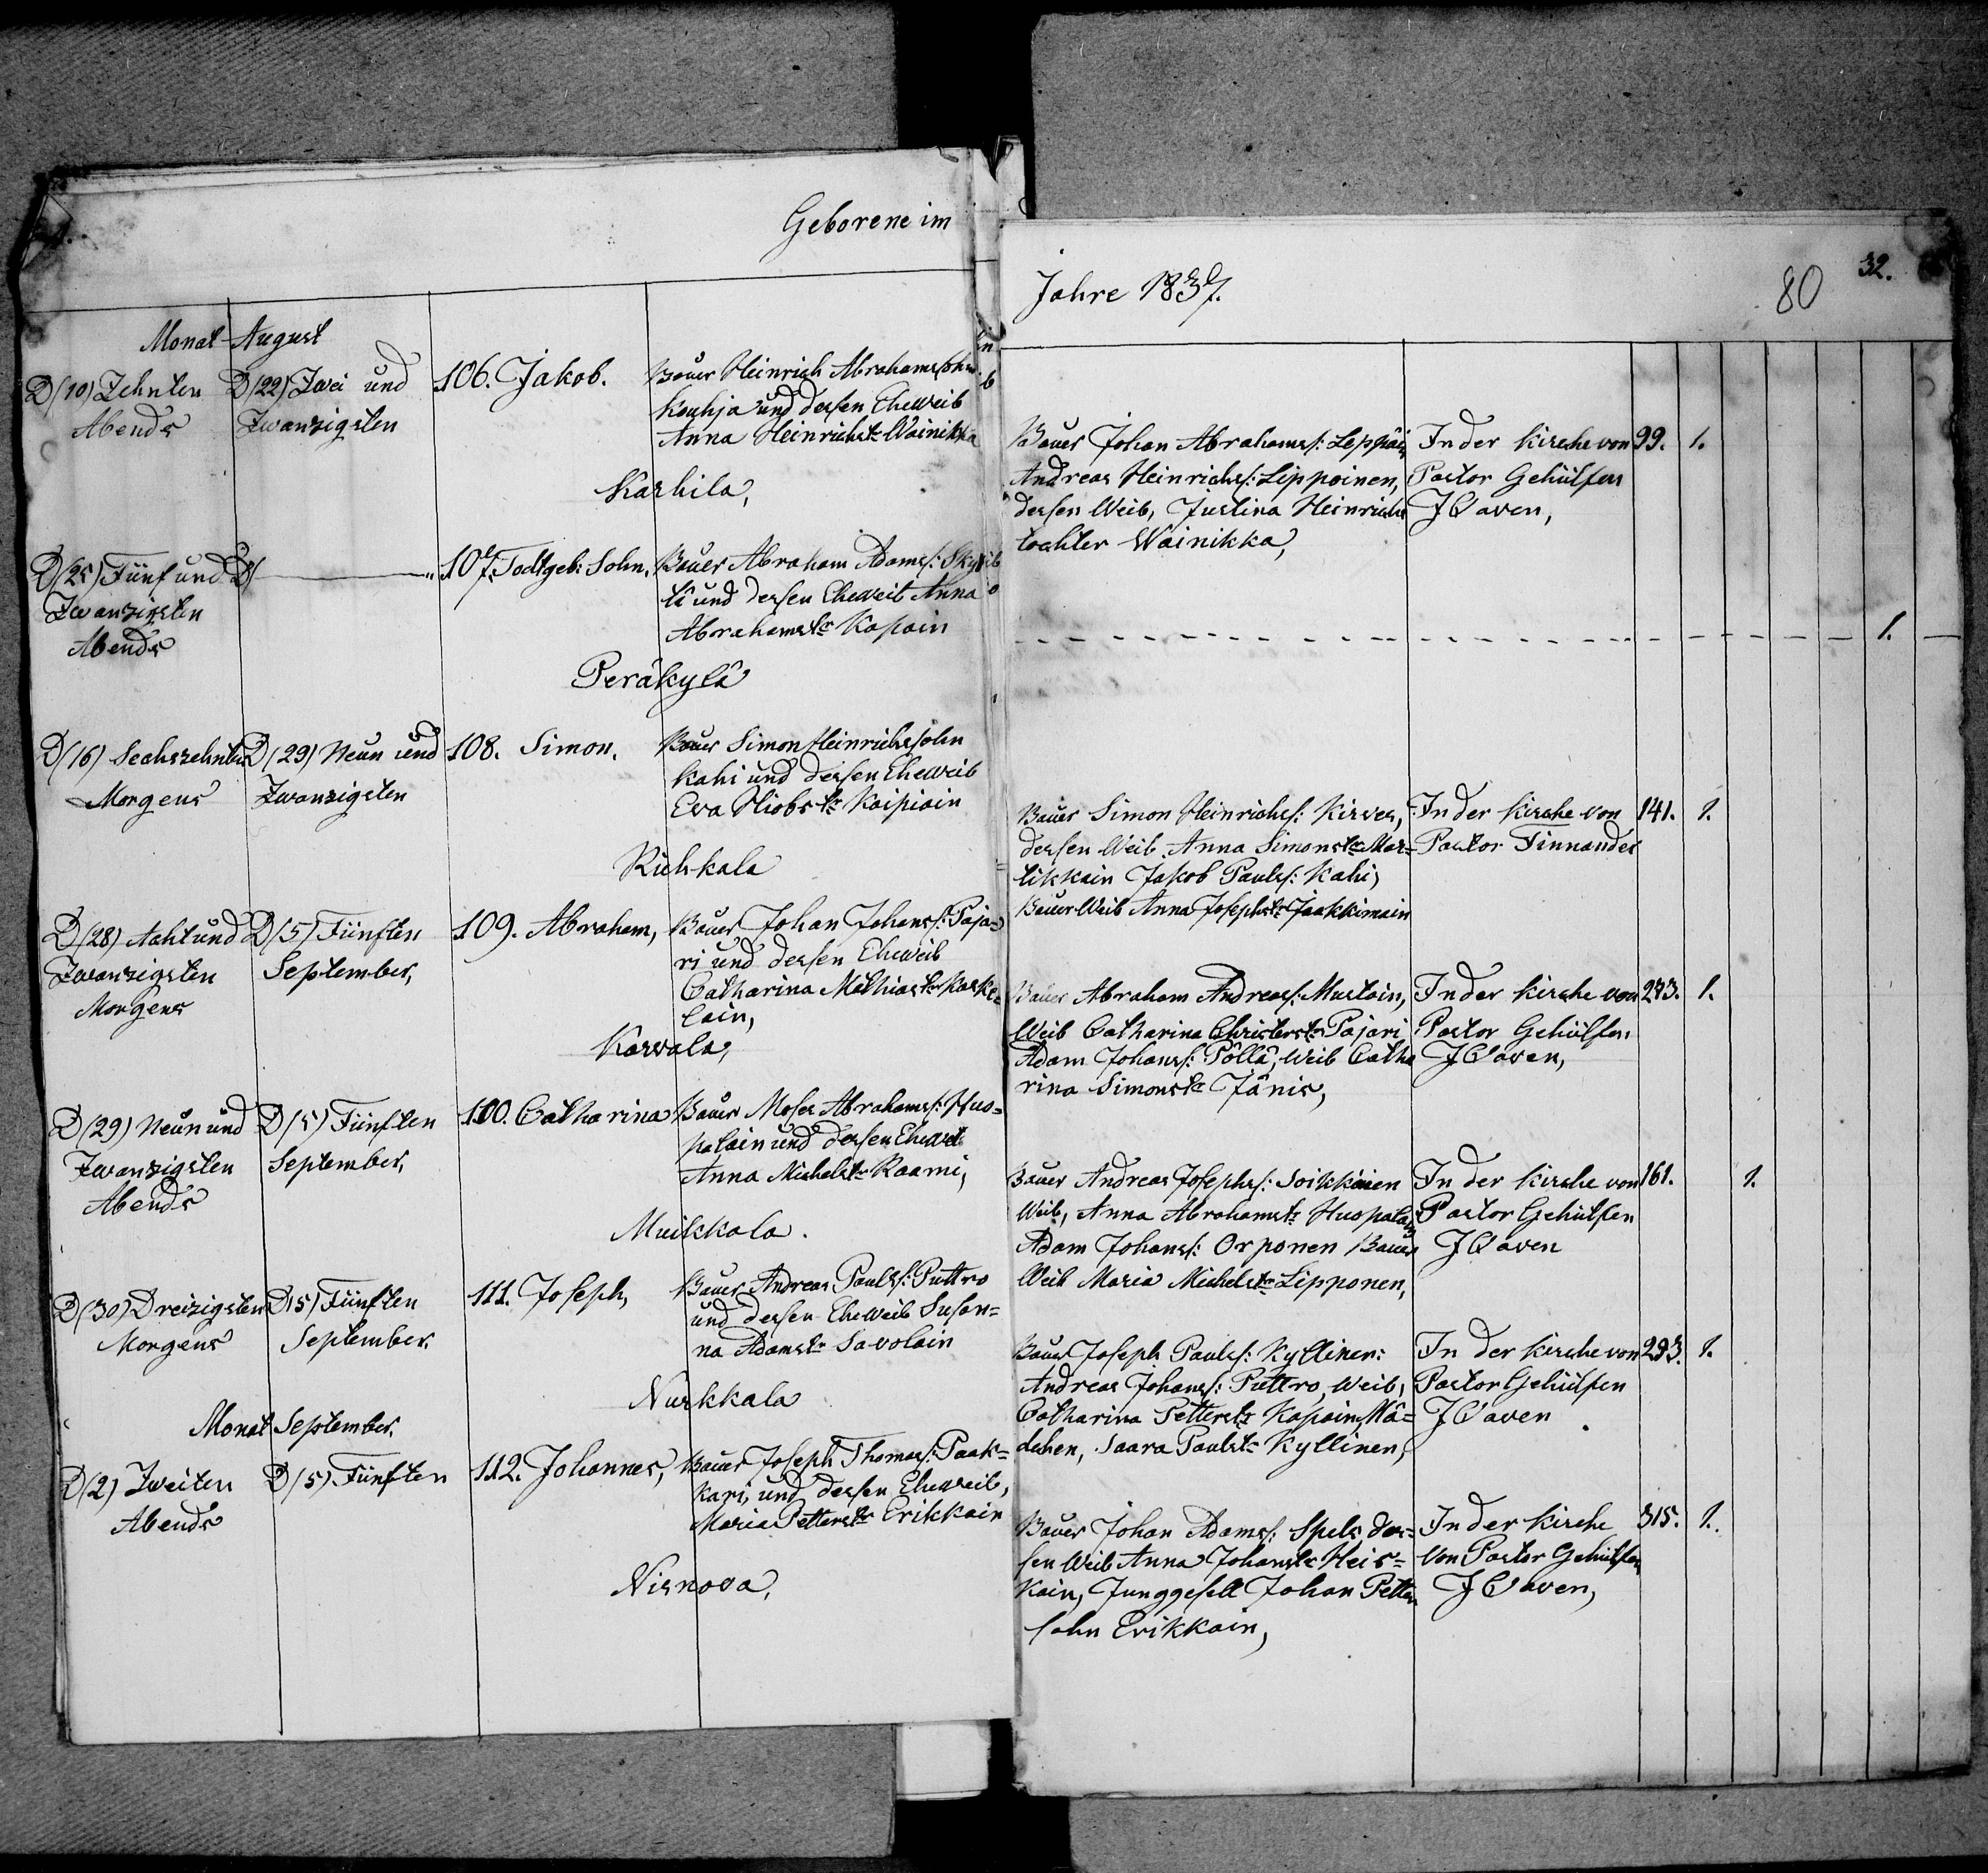 Geborene im
Jahre 1837.
80
32.
Monat August
D/(10) Zehnten
Abends
D/(22) Zwei und
Zwanzigsten
106. Jakob.
Bauer Heinrich Abrahamssohn
Kouhja und dessen Eheweib
Anna Heinrichstr Wainikka
Karhila,
Bauer Johan Abrahamss: Leppäin
Andreas Heinrichs: Lippoinen,
dessen Weib, Justina Heinrichs
tochter Wainikka,
In der Kirche von
Pastor Gehülfen
99.
1.
D/(25) Fünf und
Zwanzigsten
Abends
D/
107. Todtgeb: Sohn.
Bauer Abraham Adamss: Skyt
tä und dessen Eheweib Anna
Abrahamstr Kapain
Peräkylä
1.
D/(16) Sechszehnten
Morgens
D/(29) Neun und
Zwanzigsten
108. Simon.
Bauer Simon Heinrichssohn
Kahi und dessen Eheweib
Eva Hiobstr Kaipiain
Richkala
Bauer Simon Heinrichs: Kirves,
dessen Weib Anna Simonstr Mar=
tikkain Jakob Pauls: Kahi,
Bauer Weib Anna Josephstr Jaakkimain
In der Kirche von
Pastor Finnander
141.
1.
D/(28) Acht und
Zwanzigsten
Morgens
D/(5) Fünften
September,
109. Abraham,
Bauer Johan Johanss: Paja=
ri und dessen Eheweib
Catharina Mathiastr Karke=
lain,
Karvala,
Bauer Abraham Andreass: Mustain,
Weib Catharina Christerstr Pajari
Adam Johanss: Pöllä, Weib Catha
rina Simonstr Jänis,
In der Kirche von
Pastor Gehülfen
273.
1.
D/(29) Neun und
Zwanzigsten
Abends
D/(5) Fünften
September,
110. Catharina
Bauer Moses Abrahamss: Huo=
palain und dessen Ehewei
Anna Michelstr Raami,
Muikkala.
Bauer Andreas Josephs: Soikkainen
Weib, Anna Abrahamstr Huopalain
Adam Johanss: Orponen Bauer
Weib Maria Michelstr Lipponen,
In der Kirche von
Pastor Gehülfen
161.
1.
D/(30) Dreizigsten
Morgens
D/(5) Fünften
September.
111. Joseph,
Bauer Andreas Pauls: Puttro
und dessen Eheweib Susan=
na Adamstr Savolain
Nurkkala
Bauer Joseph Pauls: Kyllinen:
Andreas Johanss: Puttro, Weib,
Catharina Petterstr Kapain, Mä=
dchen, Saara Paulstr Kyllinen,
In der Kirche von
Pastor Gehülfen
293.
1.
Monat September.
D/(2) Zweiten
Abends
D/(5) Fünften
112. Johannes,
Bauer Joseph Thomass: Paak=
kari, und dessen Eheweib,
Maria Petterstr Erikkain
Nisnova,
Bauer Johan Adamss: Spels, des=
sen Weib Anna Johanstr Heis=
kain, Junggesell Johan Petter
sohn Erikkain,
In der Kirche
von Pastor Gehülfen
315.
1.